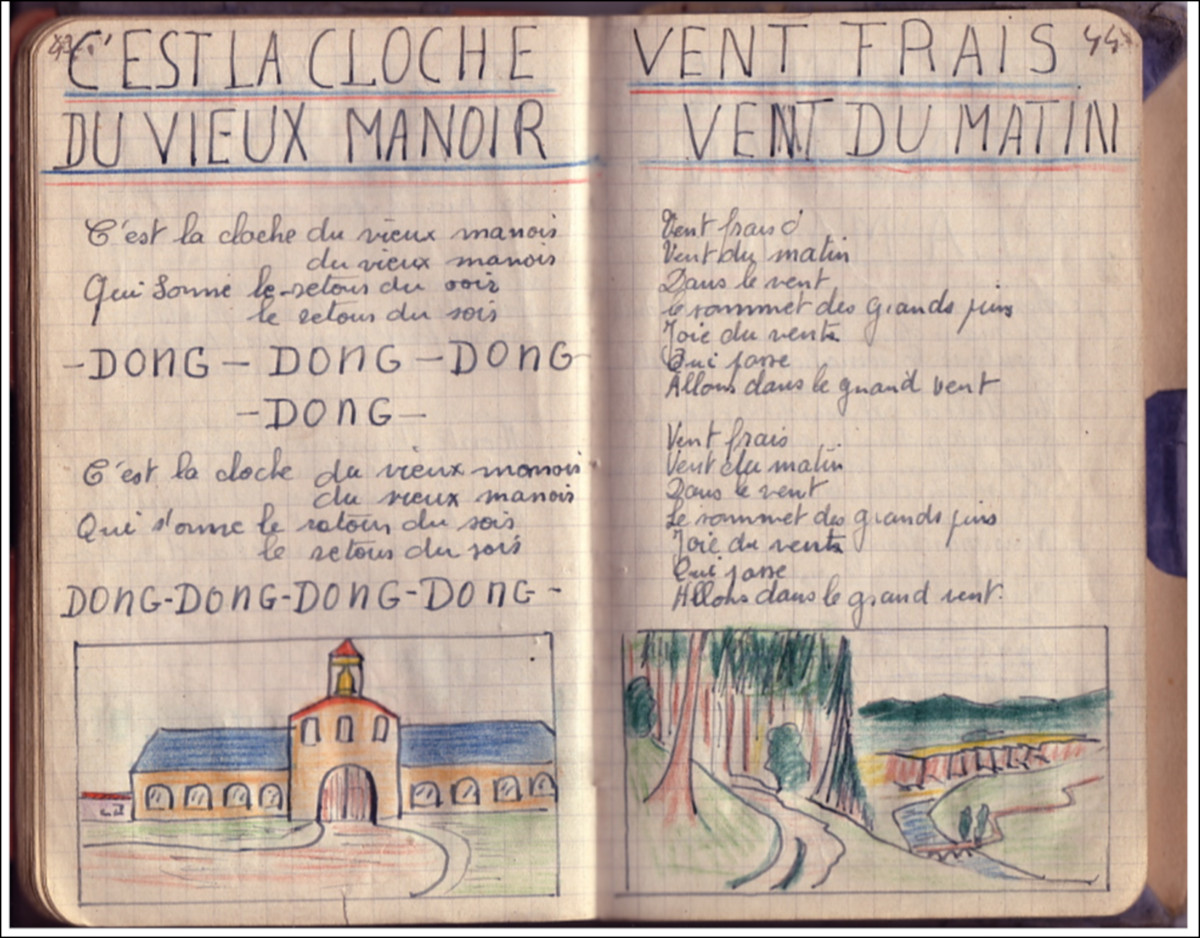 43.
C'EST LA CLOCHE
DU VIEUX MANOIR
C'est la cloche du vieux manoir
du vieux manoir
Qui sonne le retour du soir
le retour du soir
-DONG - DONG - DONG
-DONG-
C'est la cloche du vieux manoir
du vieux manoir
Qui s'onne le retour du soir
le retour du soir
DONG-DONG-DONG-DONG-
44.
VENT FRAIS
VENT DU MATIN
Vent frais
Vent du matin
Dans le vent
le sommet des grands pins
Joie du vent
Qui passe
Allons dans le grand vent
Vent frais
Vent du matin
Dans le vent
Le sommet des grands pins
Joie du vent
Qui passe
Allons dans le grand vent.